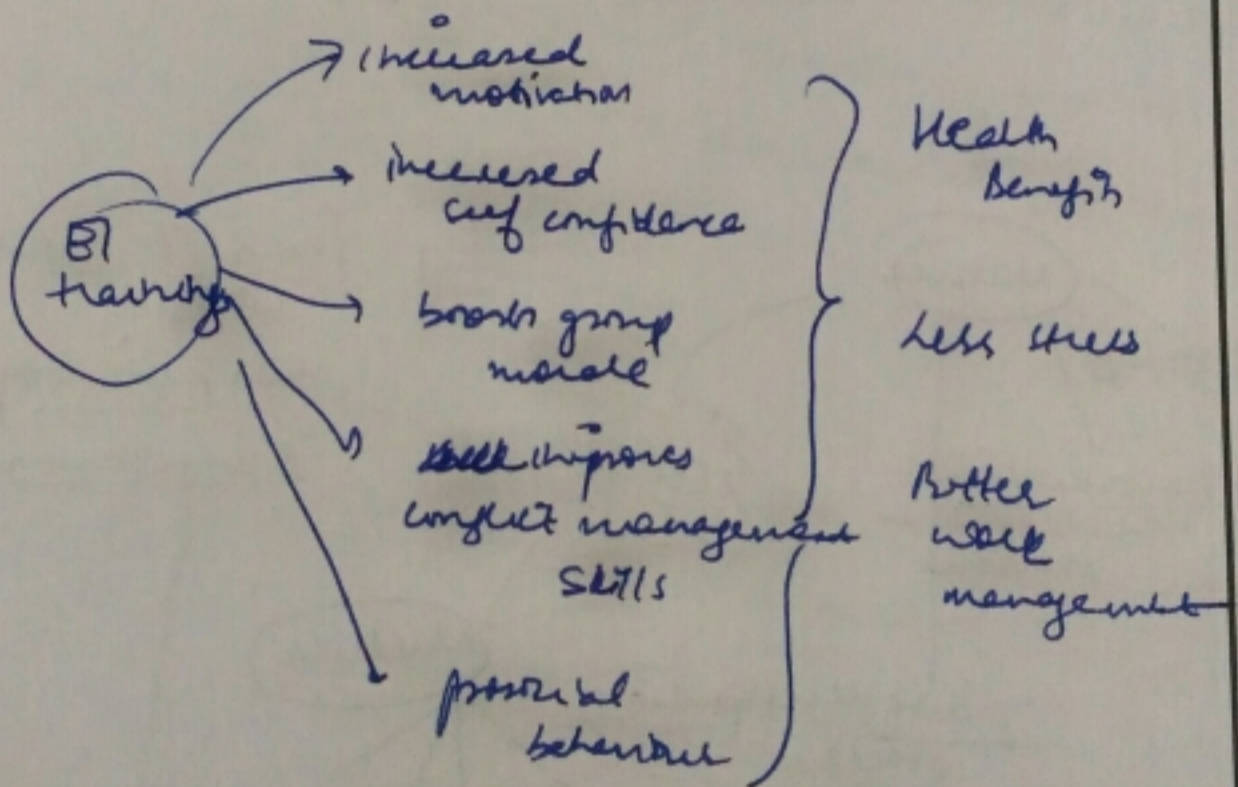 EI
training
increased
motivation
increased
self confidence
boosts group
morale
improves
conflict management
skills
prosocial
behaviour
Health
Benefits
Less stress
Better
work
management